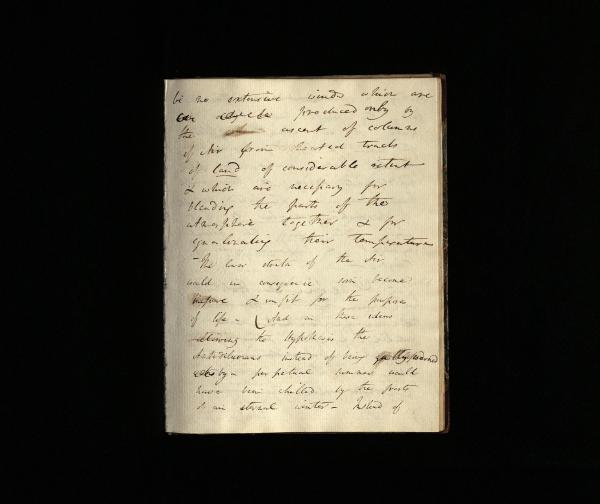 be no extensive winds which are
produced only by
the ascent of columns
of Air from heated tracts
of land of considerable extent
& which are necessary for
blending the parts of the
atmosphere together & for
equalizing their temperature
- The lower strata of the Air
would in consequence soon become
& unfit for the purpose
of life - And on these ideas
allowing the Hypothesis the
Antediluvians instead of being
by a perpetual summer would
have been chilled by the frosts
of an eternal winter - Instead of